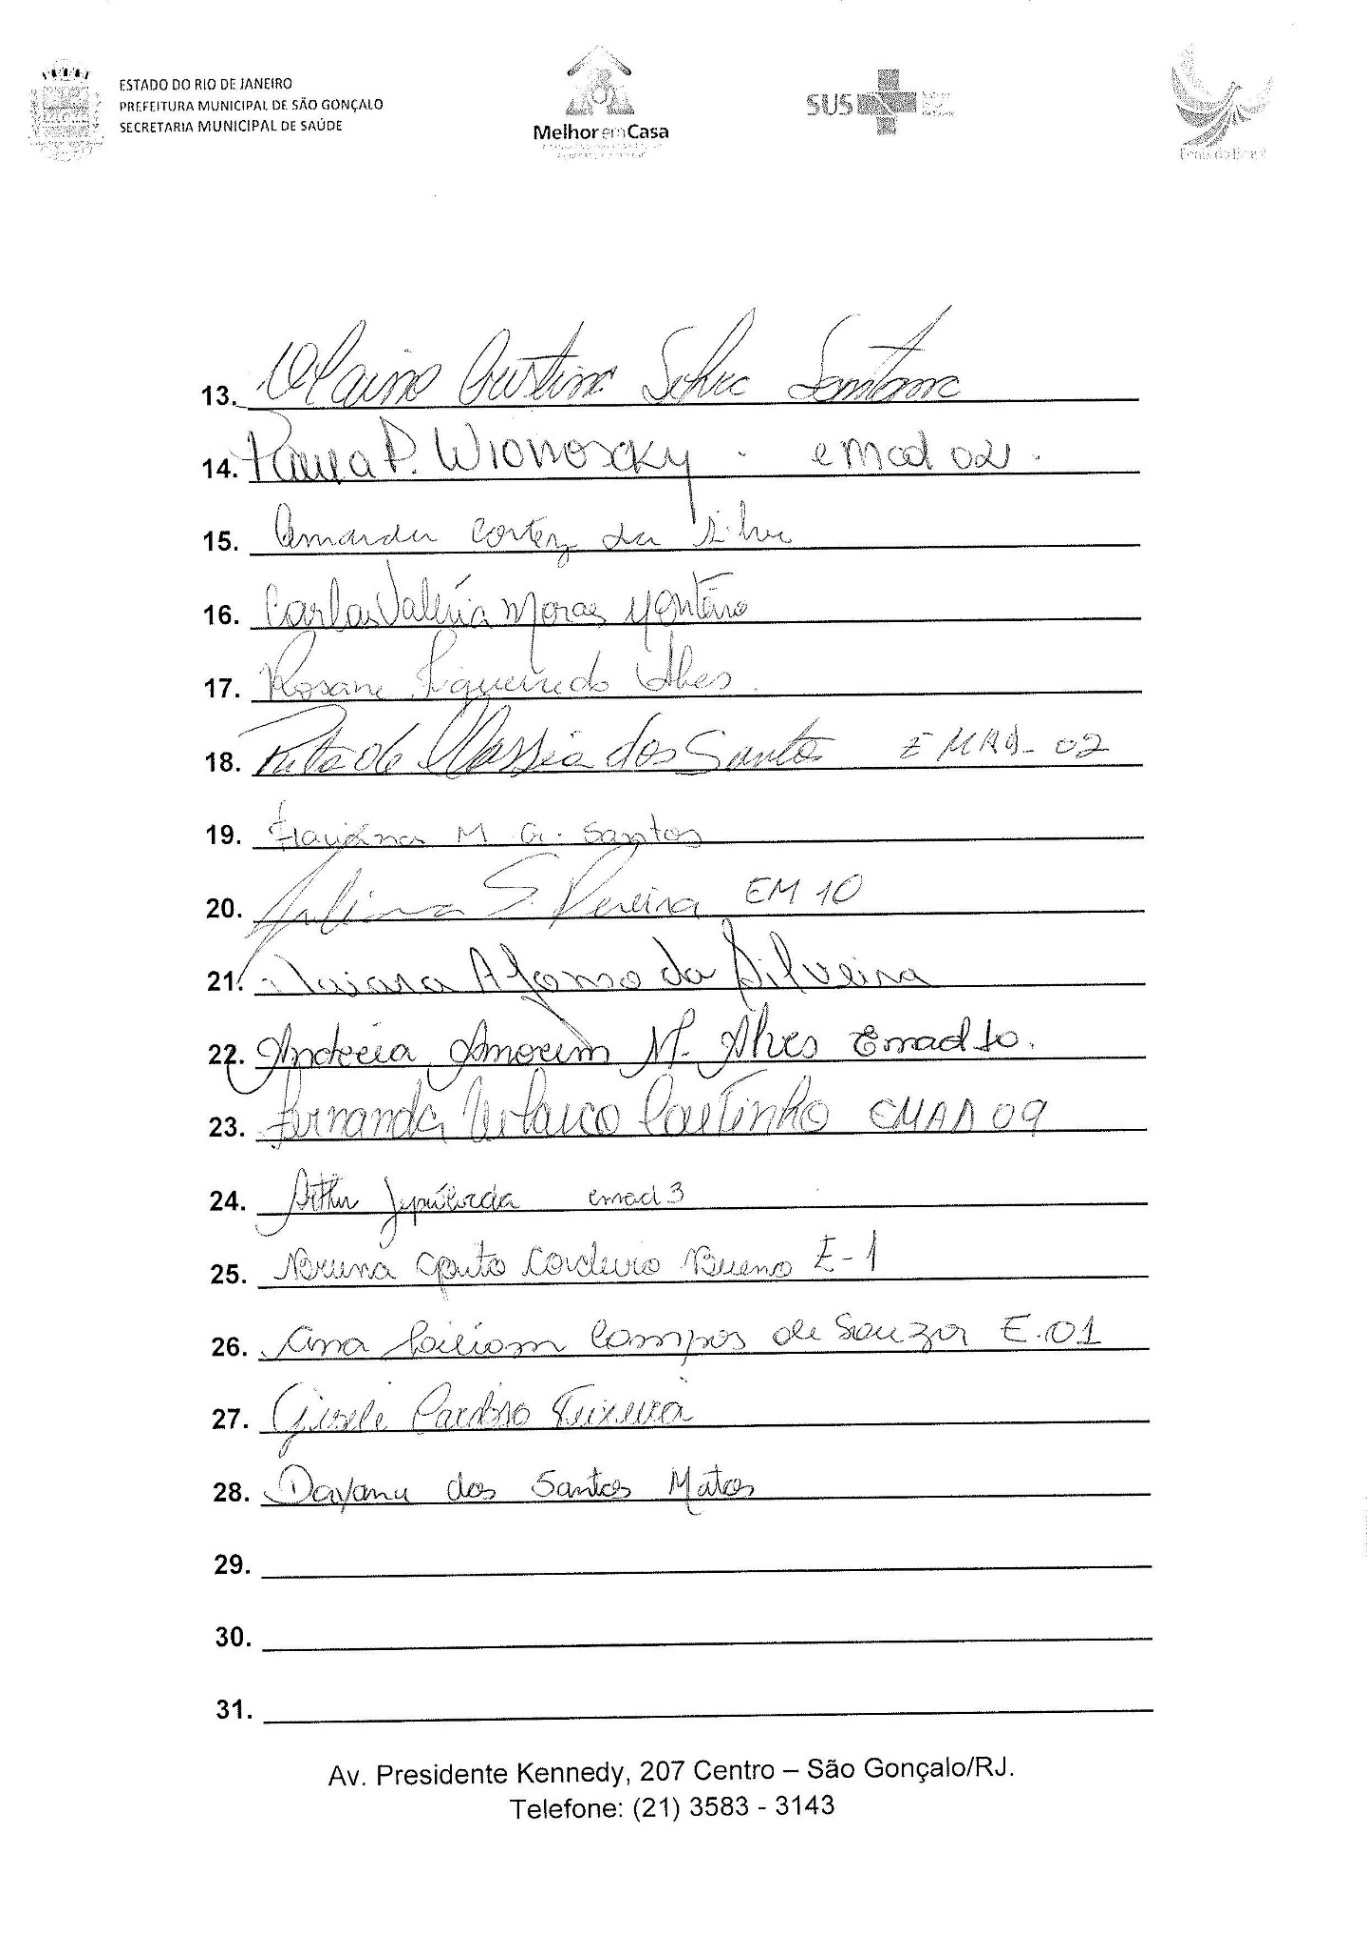 ESTADO DO RIO DE JANEIRO
PREFEITURA MUNICIPAL DE SÃO GONÇALO
SECRETARIA MUNICIPAL DE SAÚDE
Melhor em Casa
SUS
13. Cristina Silva Santana
14. Paula P. Wionoscky. emad 02.
15. Amanda Cortez da Silva
16. Carla Valéria Moraes Monteiro
17. Rosane Figueiredo Alves.
18. Rita de Cássia dos Santos EMAD-02
19. M G. Santos
20. Juliana S. Pereira EM 10
21. Naiara Afonso da Silveira
22. Andreia Amorim M. Alves Emad 10.
23. Fernanda Velasco Coutinho EMAD 09
24. Arthur Sepúlveda emad 3
25. Bruna Couto Cordeiro Bueno E-1
26. Ana Campos de Souza E.01
27. Gisele Cardoso Teixeira
28. Dayana dos Santos Matos
29.
30.
31.
Av. Presidente Kennedy, 207 Centro – São Gonçalo/RJ.
Telefone: (21) 3583 - 3143